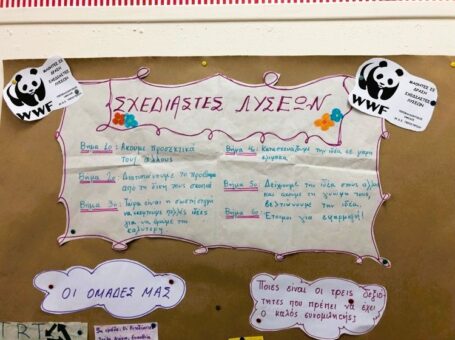 WWF
ΜΑΘΗΤΕΣ ΣΕ
ΔΡΑΣΗ
ΣΧΕΔΙΑΣΤΕΣ
ΛΥΣΕΩΝ
WWF
ΜΑΘΗΤΕΣ ΣΕ
ΔΡΑΣΗ
ΣΧΕΔΙΑΣΤΕΣ
ΛΥΣΕΩΝ
ΣΧΕΔΙΑΣΤΕΣ ΛΥΣΕΩΝ
Βήμα 1ο: Ακούμε προσεκτικά
τους άλλους
Βήμα 2ο: Διατυπώνουμε το πρόβλημα
από τη δική τους σκοπιά
Βήμα 3ο: Τώρα είναι η σωστή στιγμή
να σκεφτούμε πολλές ιδέες
για να βρούμε την
καλύτερη
Βήμα 4ο: Κατασκευάζουμε την ιδέα σε
Βήμα 5ο: Δείχνουμε την ιδέα στους άλλους
και ακούμε τη γνώμη τους,
βελτιώνουμε την ιδέα.
Βήμα 6ο: Έτοιμοι για εφαρμογή!
ΟΙ ΟΜΑΔΕΣ ΜΑΣ
Ποιες είναι οι τρεις δεξιό-
τητες που πρέπει να έχει
ο καλός συνομιλητής;